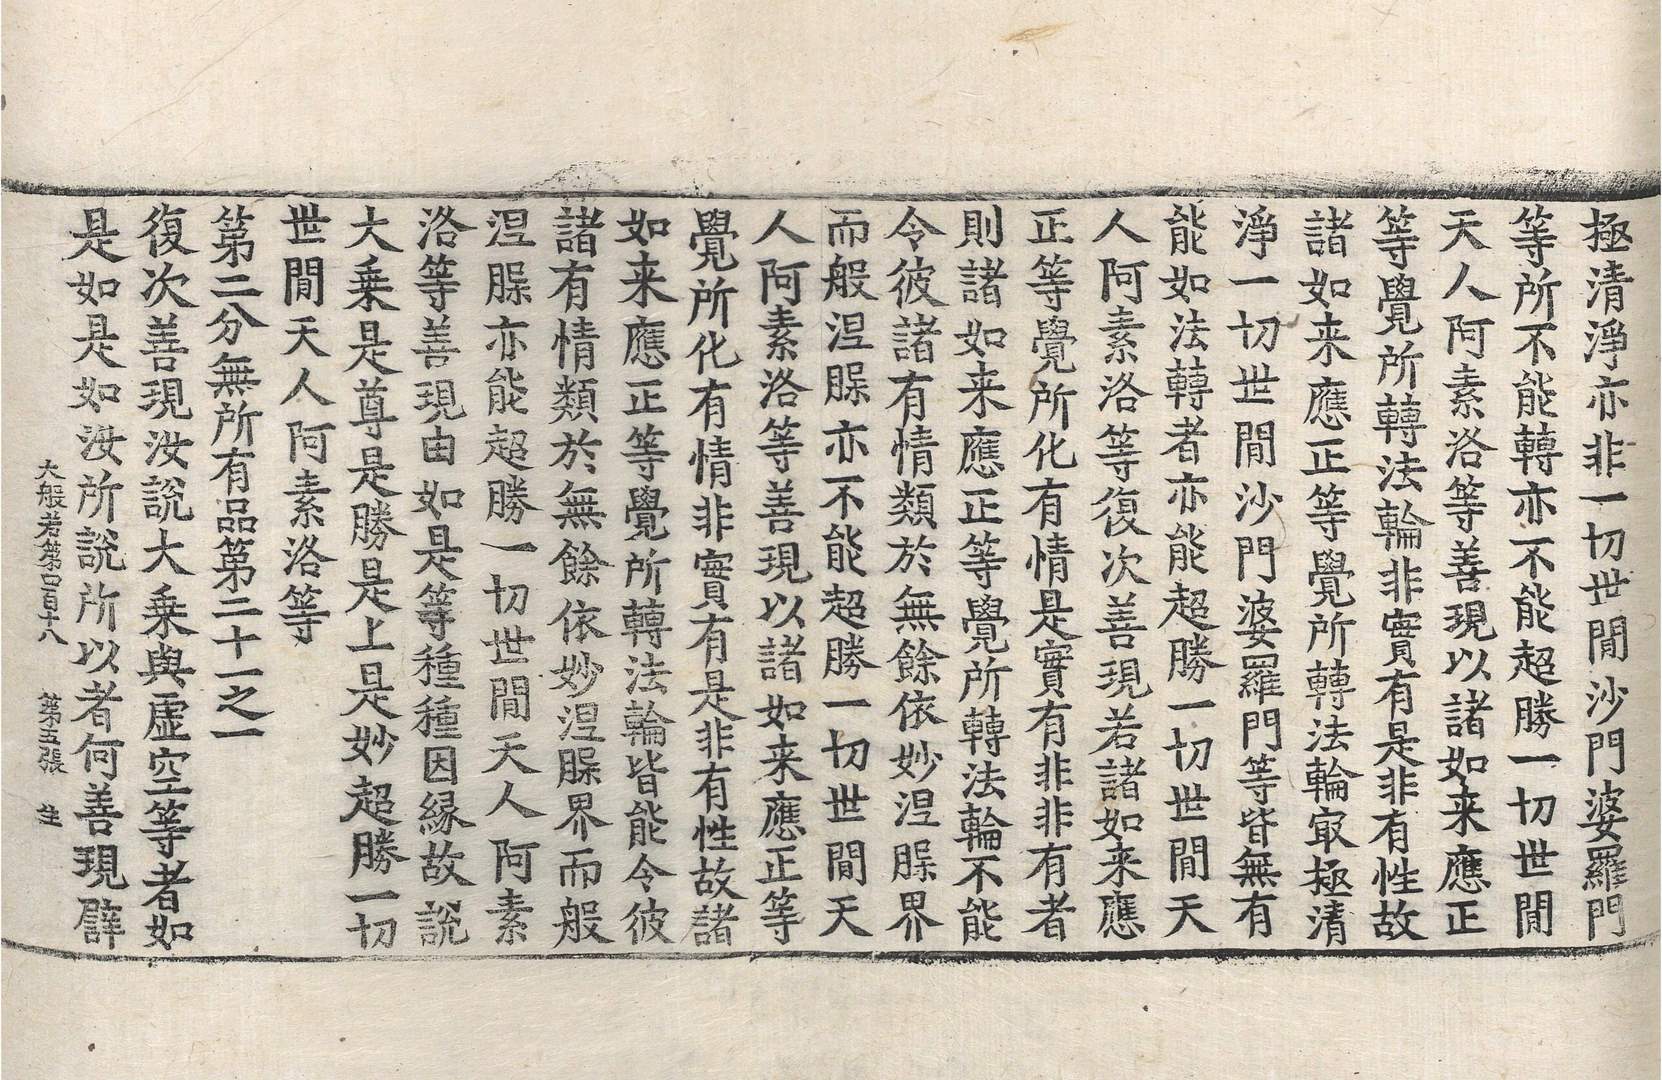 極清淨亦非一切世間沙門婆羅門
等所不能轉亦不能超勝一切世間
天人阿素洛等善現以諸如来應正
等覺所轉法輪非實有是非有性故
諸如来應正等覺所轉法輪㝡極清
淨一切世間沙門婆羅門等皆無有
能如法轉者亦能超勝一切世間天
人阿素洛等復次善現若諸如来應
正等覺所化有情是實有非非有者
則諸如来應正等覺所轉法輪不能
令彼諸有情類於無餘依妙涅槃界
而般涅槃亦不能超勝一切世間天
人阿素洛等善現以諸如来應正等
覺所化有情非實有是非有性故諸
如来應正等覺所轉法輪皆能令彼
諸有情類於無餘依妙涅槃界而般
涅槃亦能超勝一切世間天人阿素
洛等善現由如是等種種因縁故說
大乗是尊是勝是上是妙超勝一切
世間天人阿素洛等
第二分無所有品第二十一之一
復次善現汝說大乗與虛空等者如
是如是如汝所說所以者何善現譬
大般若第四百十八 第五張 生